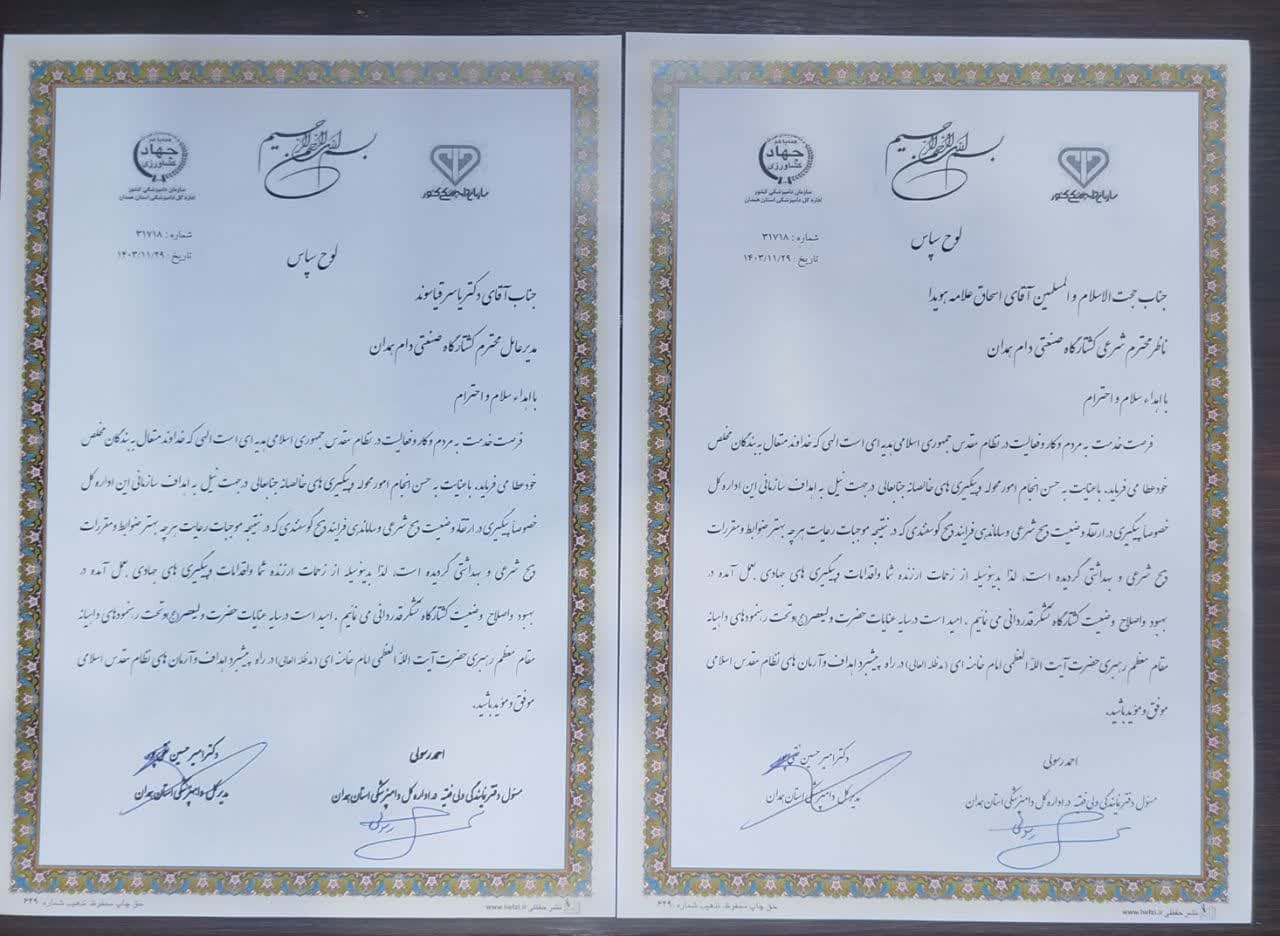 بسم الله الرحمن الرحیم
جهاد کشاورزی
سازمان دامپزشکی کشور
اداره کل دامپزشکی استان همدان
سازمان دامپزشکی کشور
شماره : ۳۱۷۱۸
تاریخ : ۱۴۰۳/۱۱/۲۹
لوح سپاس
جناب حجت الاسلام و المسلمین آقای اسحاق علامه هویدا
ناظر محترم شرعی کشتارگاه صنعتی دام همدان
با اهداء سلام و احترام
فرصت خدمت به مردم و کار و فعالیت در نظام مقدس جمهوری اسلامی هدیه ای است الهی که خداوند متعال به بندگان مخلص
خود عطا می فرماید، با عنایت به حسن انجام امور محوله و پیگیری های خالصانه جنابعالی در جهت نیل به اهداف سازمانی این اداره کل
خصوصاً پیگیری در ارتقاء وضعیت ذبح شرعی و ساماندهی فرایند ذبح گوسفندی که در نتیجه موجبات رعایت هر چه بهتر ضوابط و مقررات
ذبح شرعی و بهداشتی گردیده است، لذا بدینوسیله از زحمات ارزنده شما و اقدامات و پیگیری های جهادی بعمل آمده در
بهبود و اصلاح وضعیت کشتارگاه تشکر قدردانی می نمائیم . امید است در سایه عنایات حضرت ولیعصر(عج) و تحت رهنمودهای داهیانه
مقام معظم رهبری حضرت آیت الله العظمی امام خامنه ای (مدظله العالی) در راه پیشبرد اهداف و آرمان های نظام مقدس اسلامی
موفق و مؤید باشید.
احمد رسولی
مسئول دفتر نمایندگی ولی فقیه در اداره کل دامپزشکی استان همدان
دکتر امیر حسین
مدیر کل دامپزشکی استان همدان
رسولی
نشر حفظی www.hefzi.ir
حق چاپ محفوظ. تذهیب شماره ۶۴۹
بسم الله الرحمن الرحیم
جهاد کشاورزی
سازمان دامپزشکی کشور
اداره کل دامپزشکی استان همدان
سازمان دامپزشکی کشور
شماره : ۳۱۷۱۸
تاریخ : ۱۴۰۳/۱۱/۲۹
لوح سپاس
جناب آقای دکتر یاسر قیاسوند
مدیر عامل محترم کشتارگاه صنعتی دام همدان
با اهداء سلام و احترام
فرصت خدمت به مردم و کار و فعالیت در نظام مقدس جمهوری اسلامی هدیه ای است الهی که خداوند متعال به بندگان مخلص
خود عطا می فرماید، با عنایت به حسن انجام امور محوله و پیگیری های خالصانه جنابعالی در جهت نیل به اهداف سازمانی این اداره کل
خصوصاً پیگیری در ارتقاء وضعیت ذبح شرعی و ساماندهی فرایند ذبح گوسفندی که در نتیجه موجبات رعایت هر چه بهتر ضوابط و مقررات
ذبح شرعی و بهداشتی گردیده است، لذا بدینوسیله از زحمات ارزنده شما و اقدامات و پیگیری های جهادی بعمل آمده در
بهبود و اصلاح وضعیت کشتارگاه تشکر قدردانی می نمائیم . امید است در سایه عنایات حضرت ولیعصر(عج) و تحت رهنمودهای داهیانه
مقام معظم رهبری حضرت آیت الله العظمی امام خامنه ای (مدظله العالی) در راه پیشبرد اهداف و آرمان های نظام مقدس اسلامی
موفق و مؤید باشید.
احمد رسولی
مسئول دفتر نمایندگی ولی فقیه در اداره کل دامپزشکی استان همدان
دکتر امیر حسین
مدیر کل دامپزشکی استان همدان
رسولی
نشر حفظی www.hefzi.ir
حق چاپ محفوظ. تذهیب شماره ۶۴۹